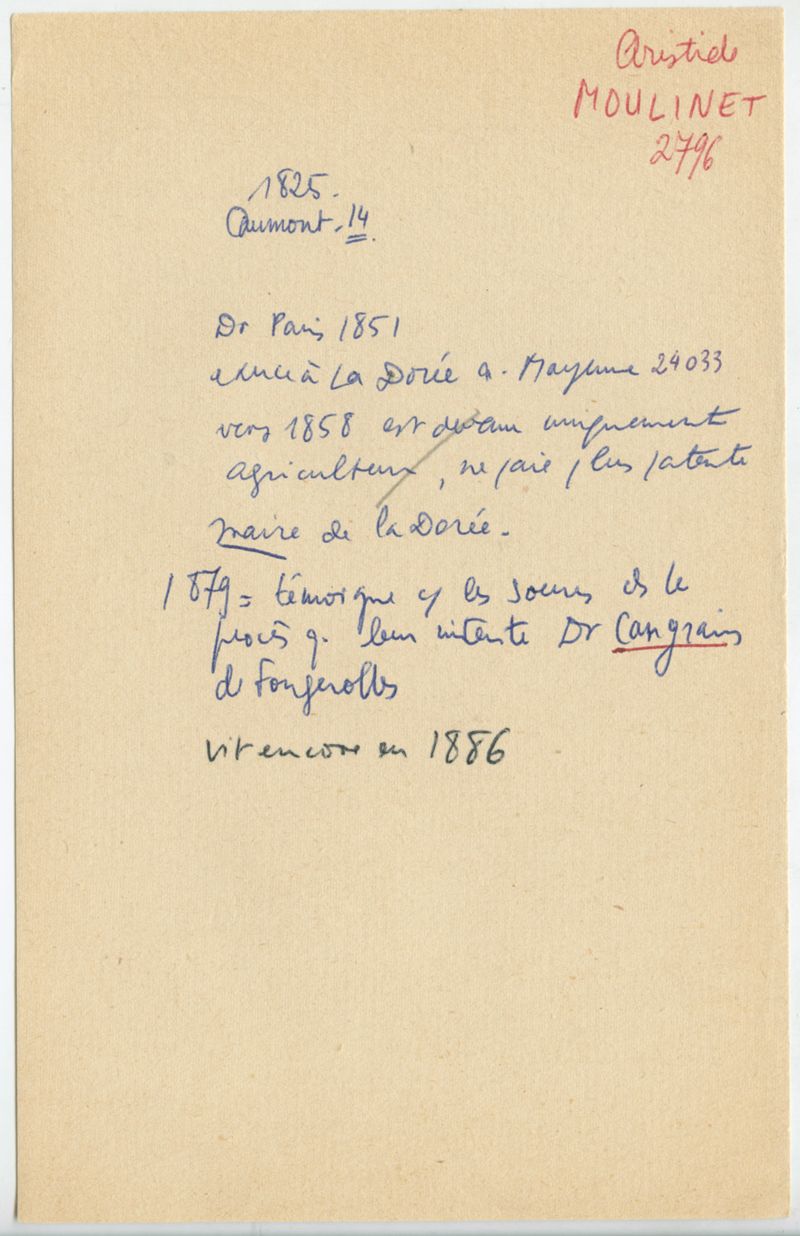 Aristide
MOULINET
2796
1825.
Caumont - 14.
Dr Paris 1851
exerce à La Dorée a. Mayenne 24033
vers 1858 est devenu uniquement
agriculteur, ne paie plus patente
maire de la Dorée.
1879 = témoigne c/ les soeurs ds le
procès q. leur intente Dr Cangrain
de Fougerolles
vit encore en 1886